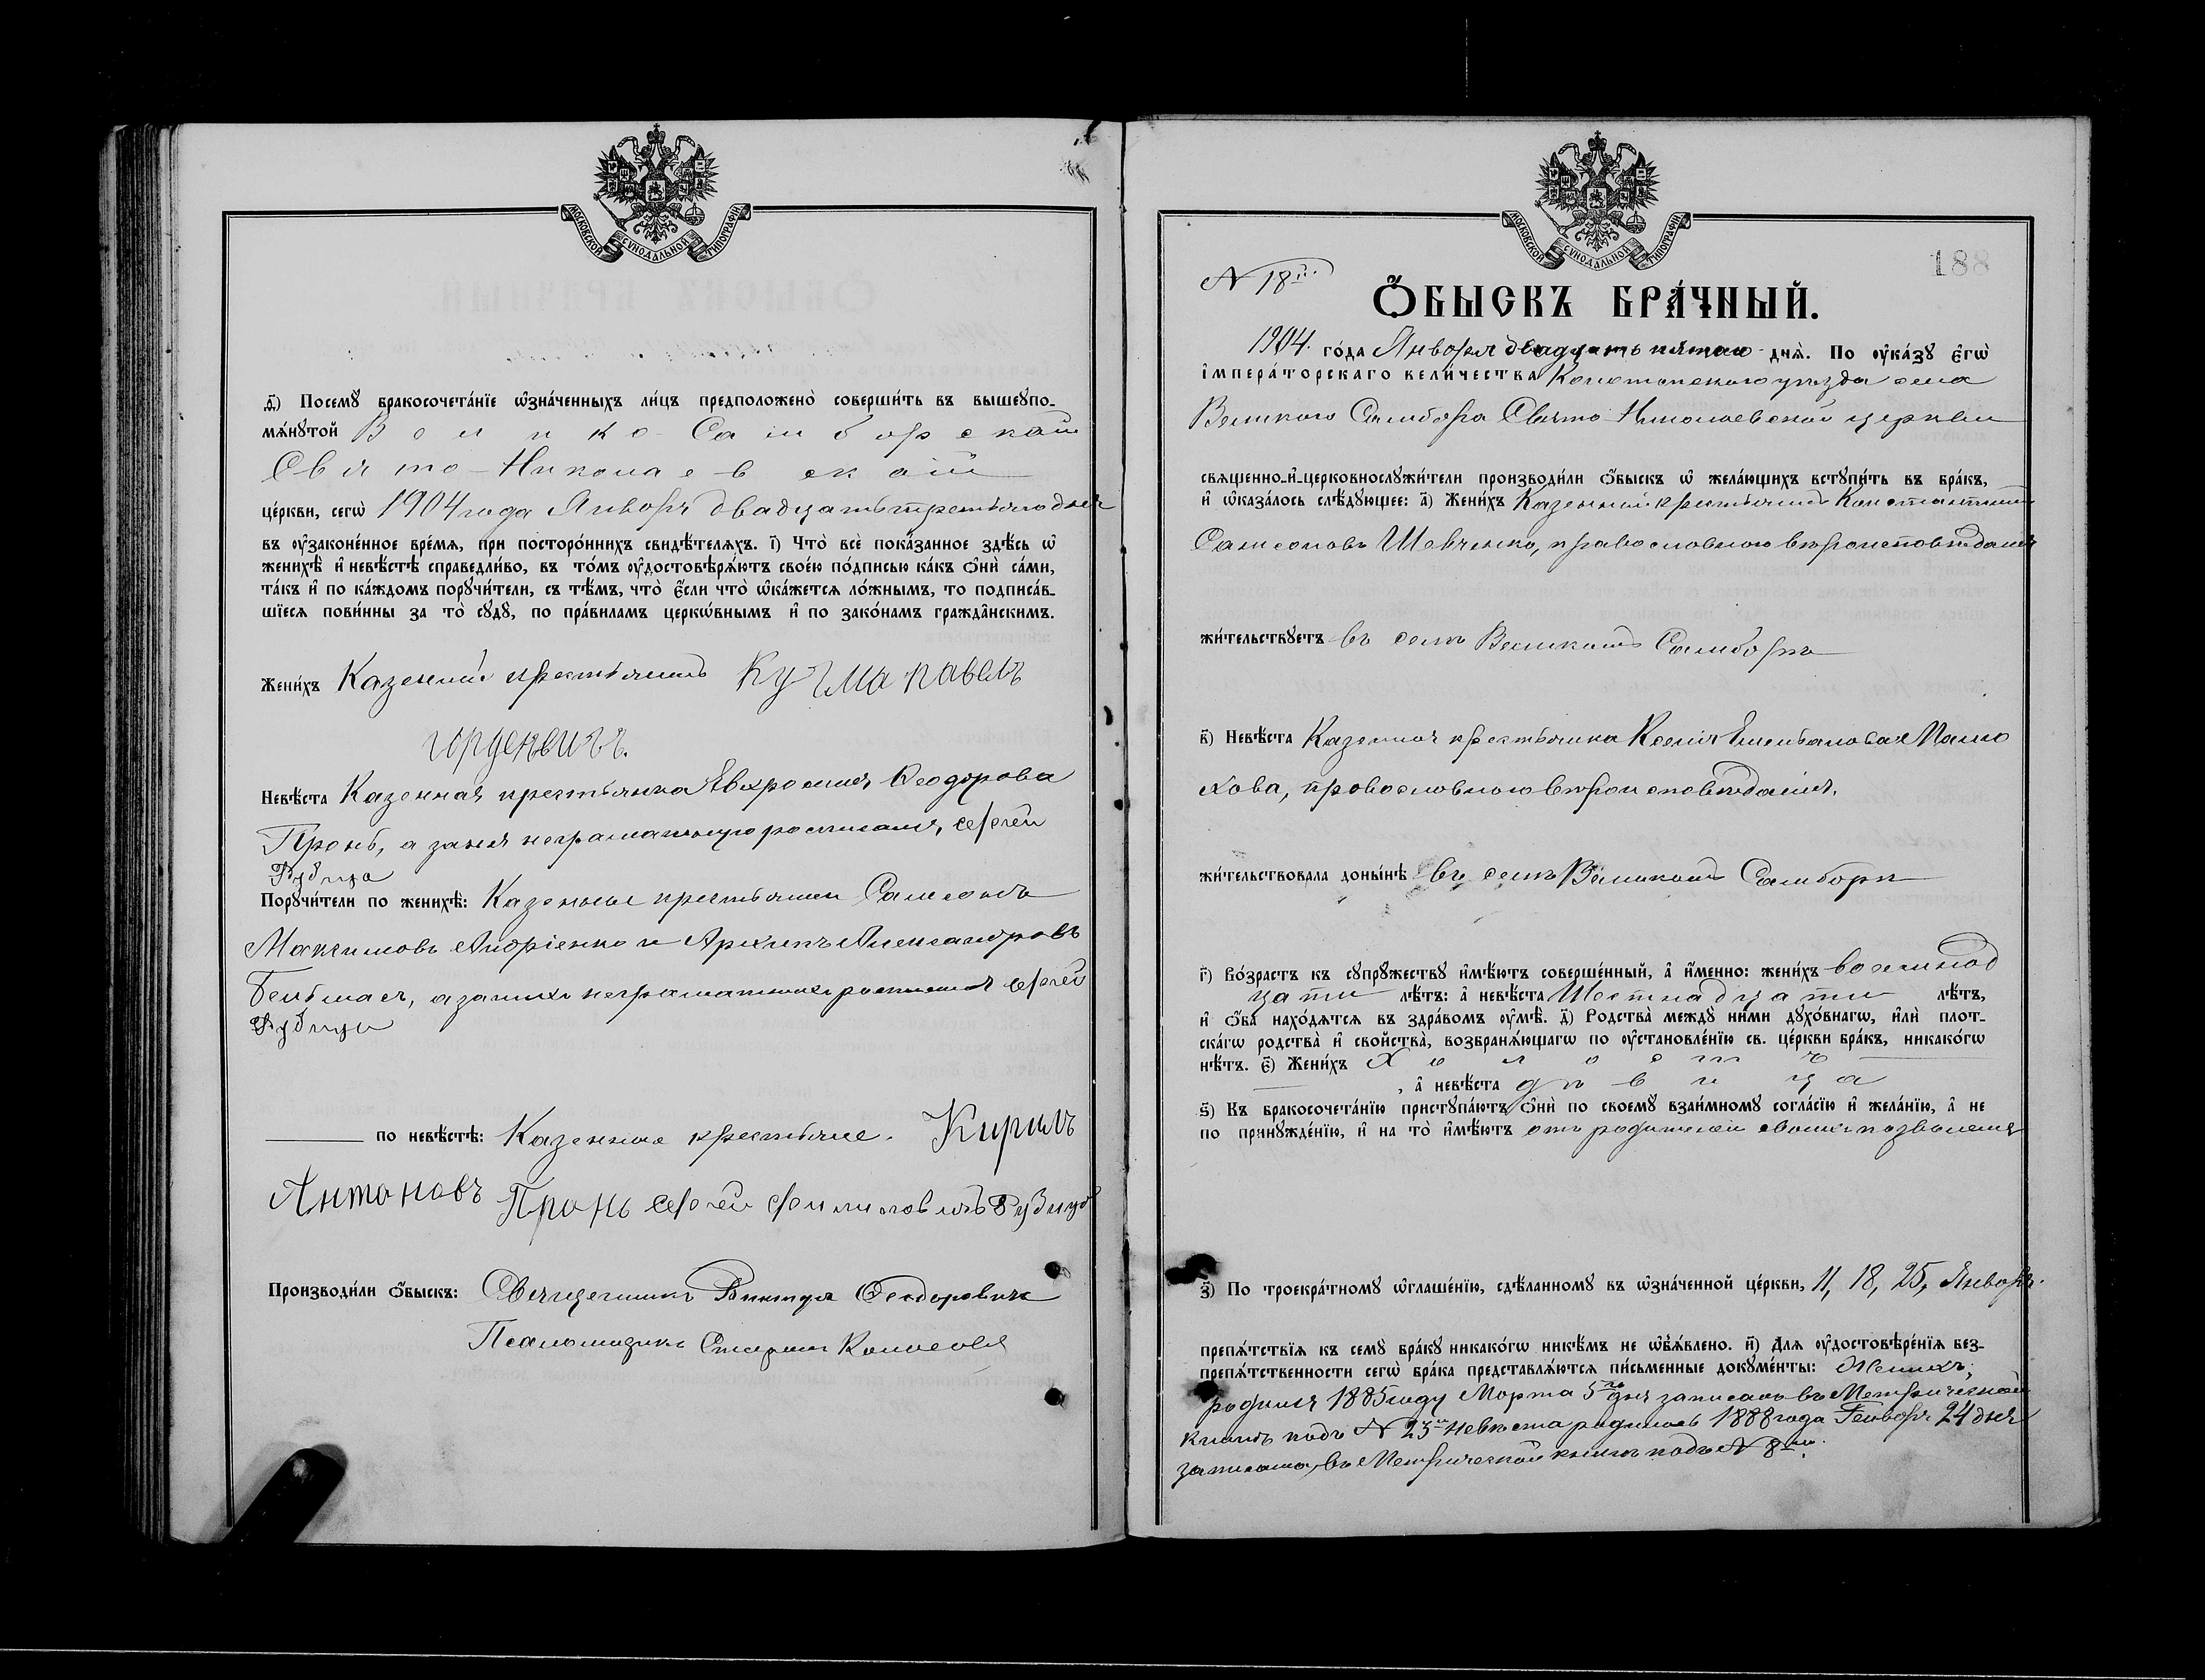 МОСКОВСКОЙ СѴНОДАЛЬНОЙ ТИПОГРАФІИ
д҃) Посемꙋ̀ бракосочета́нїе ѡ҆зна́ченныхъ ли́цъ предположено̀ соверши́ть въ вышеꙋпо-
мѧ́нꙋтой Велико-Самборской
Свято-Николаевской
це́ркви, сегѡ̀ 1904 года Января двадцать третьяго дня
въ ᲂу҆законе́нное вре́мѧ, при посторо́ннихъ свидѣ́телѧхъ. і҃) Что̀ всѐ пока́занное здѣ́сь ѡ҆
женихѣ̀ и҆ невѣ́стѣ справедли́во, въ то́мъ ᲂу҆достовѣрѧ́ютъ свое́ю по́дписью ка́къ ѻ҆нѝ са́ми,
та́къ и҆ по ка́ждомъ порꙋчи́тели, съ тѣ́мъ, что̀ є҆́сли что̀ ѡ҆ка́жетсѧ ло́жнымъ, то подписа́в-
шїесѧ пови́нны за то̀ сꙋдꙋ̀, по пра́виламъ церко́внымъ и҆ по зако́намъ гражда́нскимъ.
Жени́хъ Казенный крестьянинъ Кучма павелъ
Невѣ́ста Казенная крестьянка Евхросинія Феодорова
Пронь, а за нея неграматную росписался, Сергей
Рубица
Порꙋчи́тели по женихѣ̀: Казенные крестьяни Самсонъ
Максимовъ Андріенко и Архипъ Александровъ
а за нихъ неграматныхъ росписался Сергей
Рубица
по невѣ́стѣ: Казенные крестьяне. Кирилъ
Антоновъ Пронь Сергей Филиповичъ Рубица
Производи́ли ѻ҆́быскъ: Священникъ Викторъ Федоровичъ
Псаломщикъ Стефанъ
МОСКОВСКОЙ СѴНОДАЛЬНОЙ ТИПОГРАФІИ
188
N 18й.
Ѻ҆́БЫСКЪ БРА́ЧНЫЙ.
1904. го́да Января двадцать пятаго днѧ̀. По ᲂу҆ка́зꙋ є҆гѡ̀
і҆мпера́торскаго вели́чества Конотопскаго уѣзда села
Великаго Самбора Свято-Николаевской церкви
свѧщенно-и҆-церковнослꙋжи́тели производи́ли ѻ҆́быскъ ѡ҆ жела́ющихъ встꙋпи́ть въ бра́къ,
и҆ ѡ҆каза́лось слѣ́дꙋющее: а҃) Жени́хъ Казенный крестьянинъ Константинъ
Самсоновъ Шевченко, православнаго вѣроисповѣданія
жи́тельствꙋетъ въ селѣ Великомъ Самборѣ
в҃) Невѣ́ста Казенная крестьянка Ксенія Емельяновая Мало
хова, православнаго вѣроисповѣданія.
жи́тельствовала доны́нѣ въ селѣ Великомъ Самборѣ
г҃) Во́зрастъ къ сꙋпрꙋ́жествꙋ и҆мѣ́ютъ соверше́нный, а҆ и҆́менно: жени́хъ восемнад
цати лѣ́тъ: а҆ невѣ́ста Шестнадцати лѣ́тъ,
и҆ ѻ҆́ба нахо́дѧтсѧ въ здра́вомъ ᲂу҆мѣ̀. д҃) Родства̀ междꙋ̀ ни́ми дꙋхо́внагѡ, и҆лѝ плот-
ска́гѡ родства̀ и҆ свойства̀, возбранѧ́ющагѡ по ᲂу҆становле́нїю св. це́ркви бра́къ, никако́гѡ
нѣ́тъ. є҃) Жени́хъ Холостъ
, а҆ невѣ́ста дѣвица
ѕ҃) Къ бракосочета́нїю пристꙋпа́ютъ ѻ҆нѝ по своемꙋ̀ взаи́мномꙋ согла́сїю и҆ жела́нїю, а҆ не
по принꙋжде́нїю, и҆ на то̀ и҆мѣ́ютъ отъ родителей своихъ позволенія
з҃) По троекра́тномꙋ ѡ҆глаше́нїю, сдѣ́ланномꙋ въ ѡ҆зна́ченной це́ркви, 11, 18, 25, Января.
препѧ́тствїѧ къ семꙋ̀ бра́кꙋ никако́гѡ никѣ́мъ не ѡ҆бъѧ́влено. и҃) Длѧ̀ ᲂу҆достовѣре́нїѧ без-
препѧ́тственности сегѡ̀ бра́ка представлѧ́ютсѧ пи́сьменные докꙋме́нты: Женихъ,
родился 1885 году Марта 5го дня записанъ въ Метрической
книгѣ подъ N 23 Невѣста родилась 1888 года Генваря 24 дня
записана, въ Метрической книгѣ подъ N 8мъ.